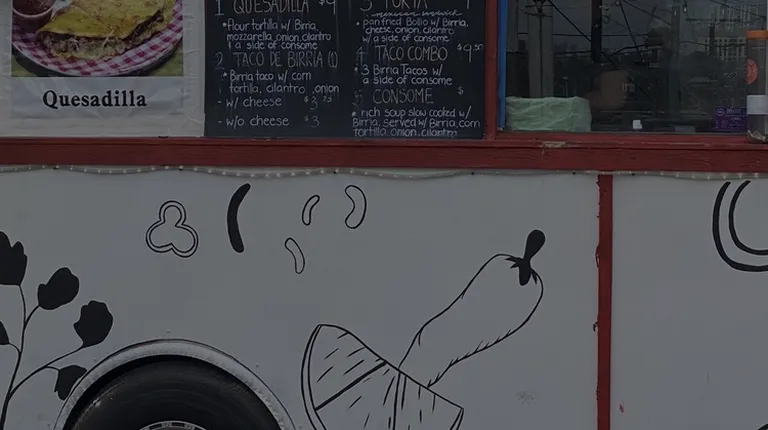 Quesadilla
1 QUESADILLA $9
*Flour tortilla w/ Birria,
mozzarella, onion, cilantro
1 a side of consome
2 TACO DE BIRRIA (1)
*Birria taco w/ corn
tortilla, cilantro, onion
- w/ cheese $3.75
- w/o cheese $3
3 TORTA
mexican sandwich
*pan fried Bolio w/ Birria,
cheese, onion, cilantro
w/ a side of consome
4 TACO COMBO $9.50
*3 Birria Tacos w/
a side of consome
5 CONSOME
* rich soup slow cooked w/
Birria, served w/ Birria, corn
tortilla, onion, cilantro